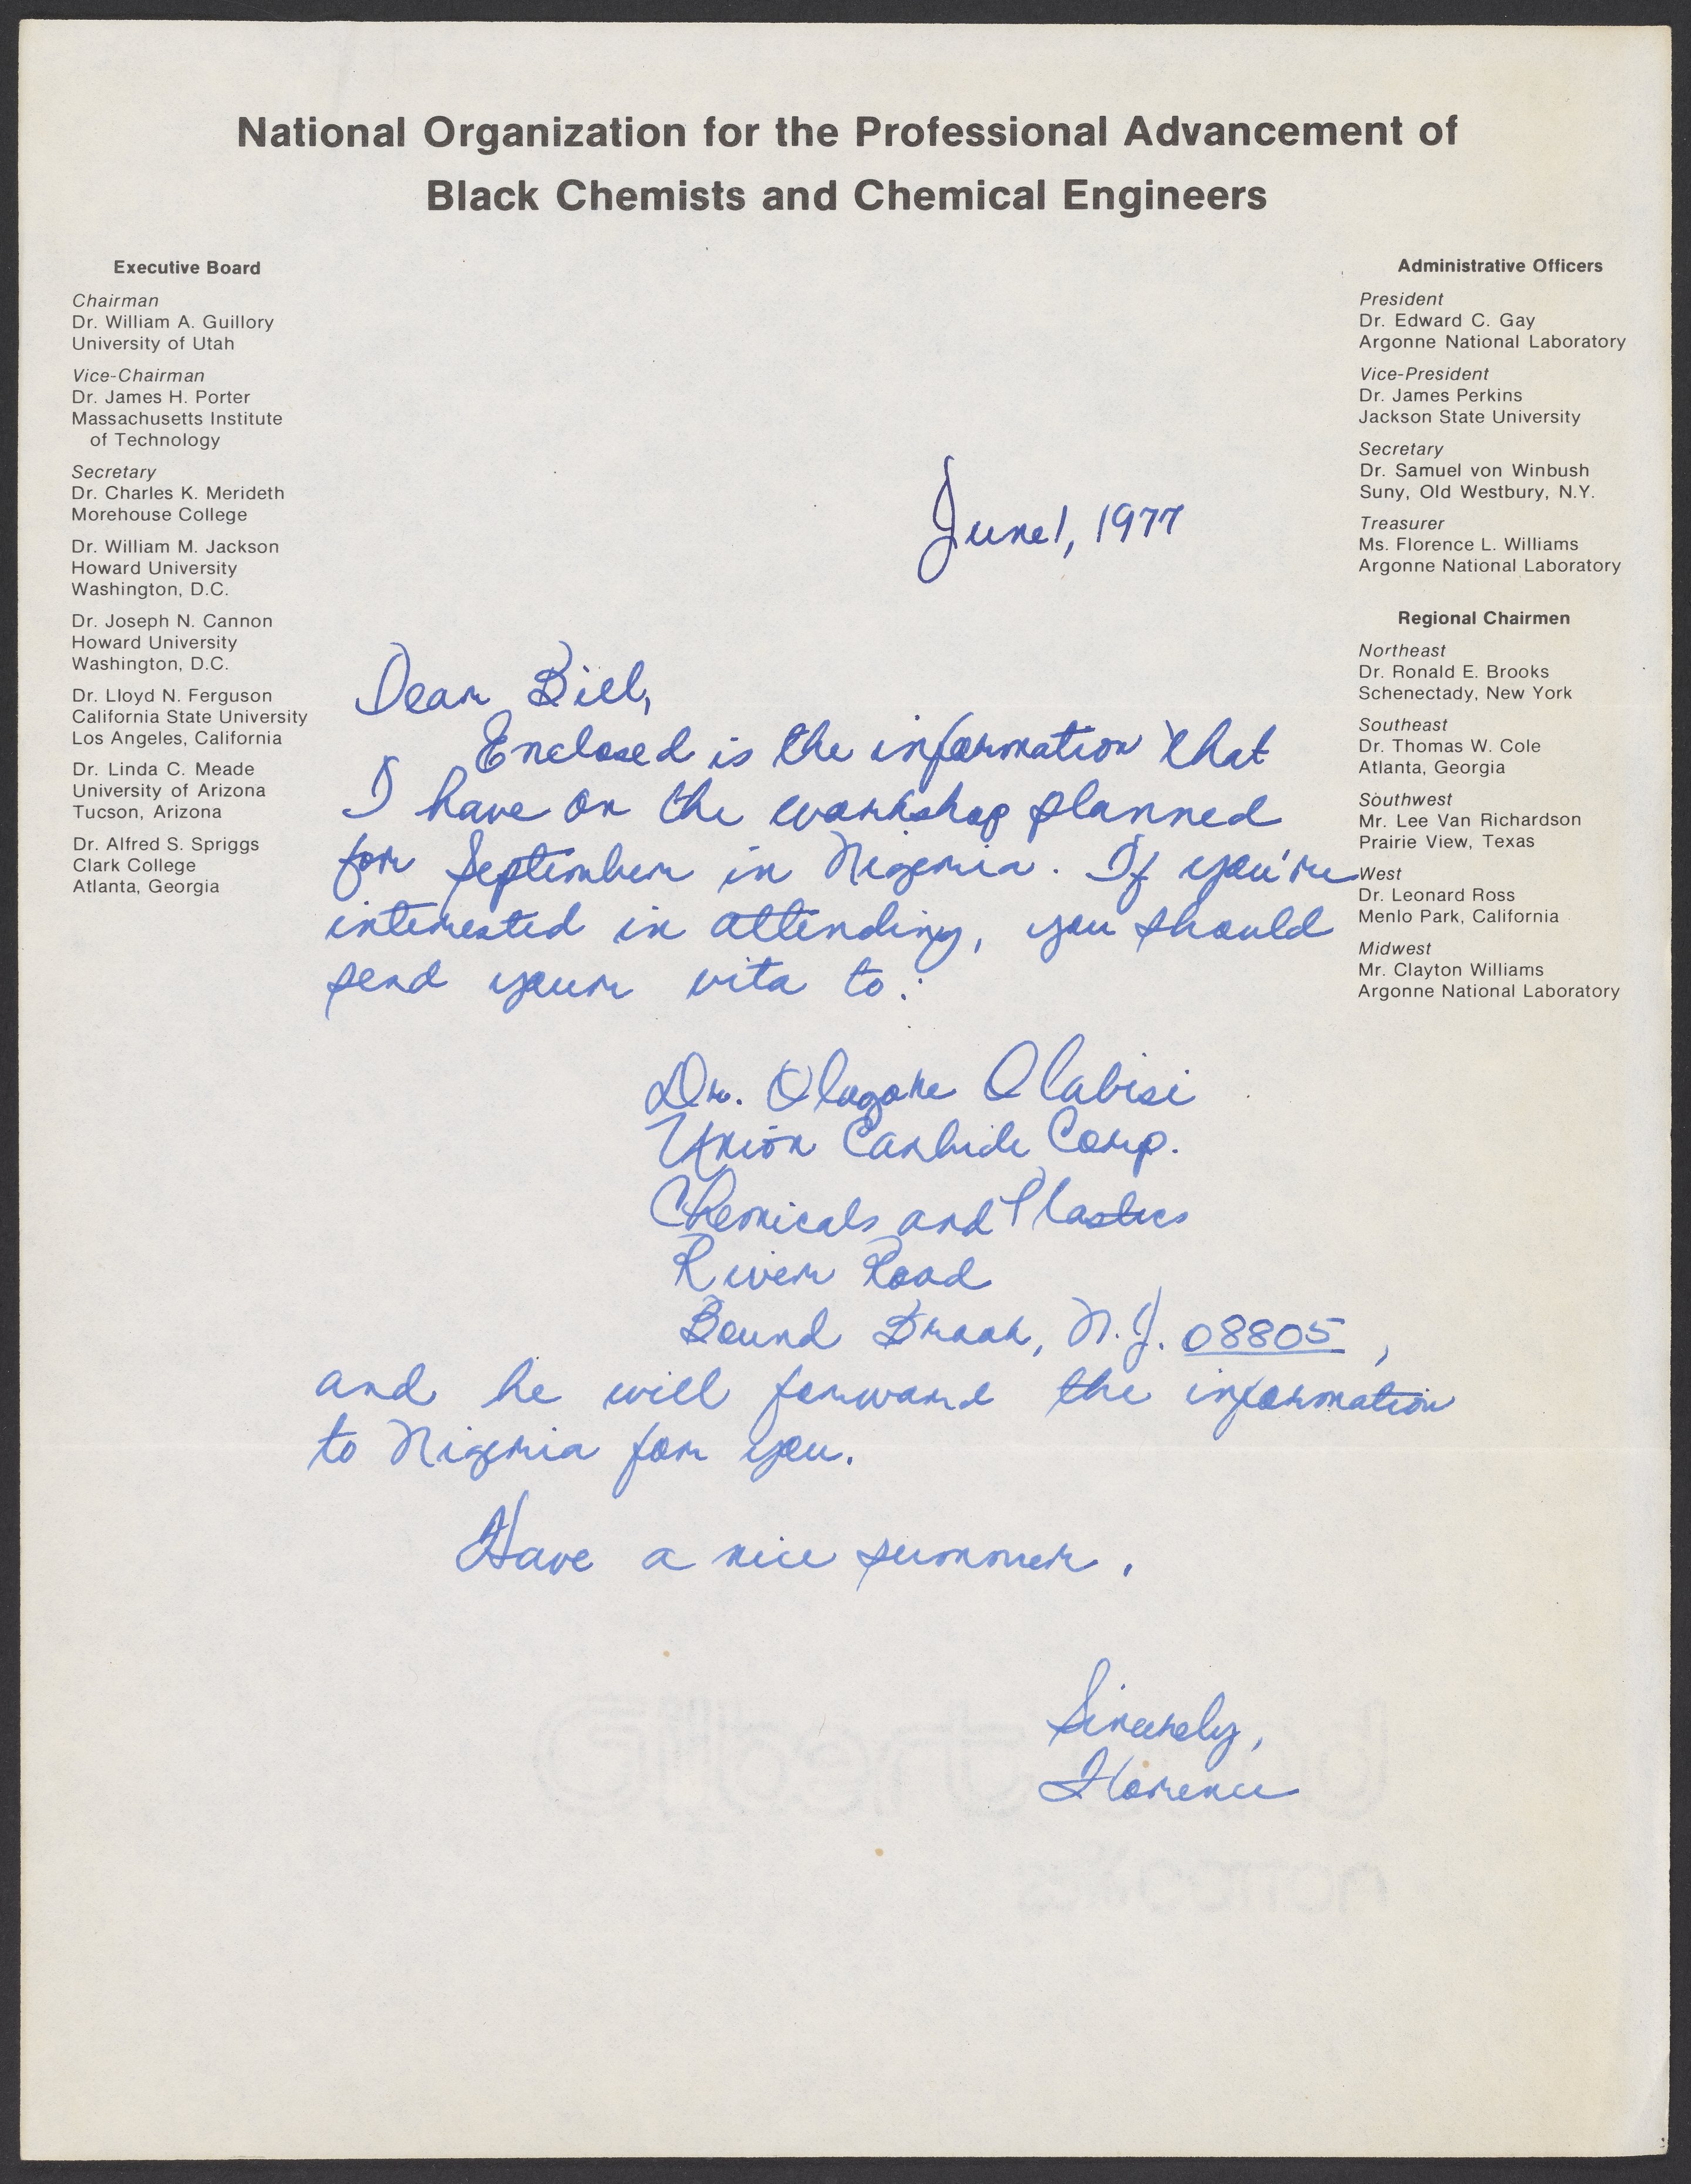 National Organization for the Professional Advancement of
Black Chemists and Chemical Engineers
Executive Board
Chairman
Dr. William A. Guillory
University of Utah
Vice-Chairman
Dr. James H. Porter
Massachusetts Institute
of Technology
Secretary
Dr. Charles K. Merideth
Morehouse College
Dr. William M. Jackson
Howard University
Washington, D.C.
Dr. Joseph N. Cannon
Howard University
Washington, D.C.
Dr. Lloyd N. Ferguson
California State University
Los Angeles, California
Dr. Linda C. Meade
University of Arizona
Tucson, Arizona
Dr. Alfred S. Spriggs
Clark College
Atlanta, Georgia
Administrative Officers
President
Dr. Edward C. Gay
Argonne National Laboratory
Vice-President
Dr. James Perkins
Jackson State University
Secretary
Dr. Samuel von Winbush
Suny, Old Westbury, N.Y.
Treasurer
Ms. Florence L. Williams
Argonne National Laboratory
Regional Chairmen
Northeast
Dr. Ronald E. Brooks
Schenectady, New York
Southeast
Dr. Thomas W. Cole
Atlanta, Georgia
Southwest
Mr. Lee Van Richardson
Prairie View, Texas
West
Dr. Leonard Ross
Menlo Park, California
Midwest
Mr. Clayton Williams
Argonne National Laboratory
June 1, 1977
Dear Bill,
Enclosed is the information that
I have on the workshop planned
for September in Nigeria. If you're
interested in attending, you should
send your vita to:
Dr. Olagoke Olabisi
Union Carbide Corp.
Chemicals and Plastics
River Road
Bound Brook, N.J. 08805,
and he will forward the information
to Nigeria for you.
Have a nice summer.
Sincerely,
Florence